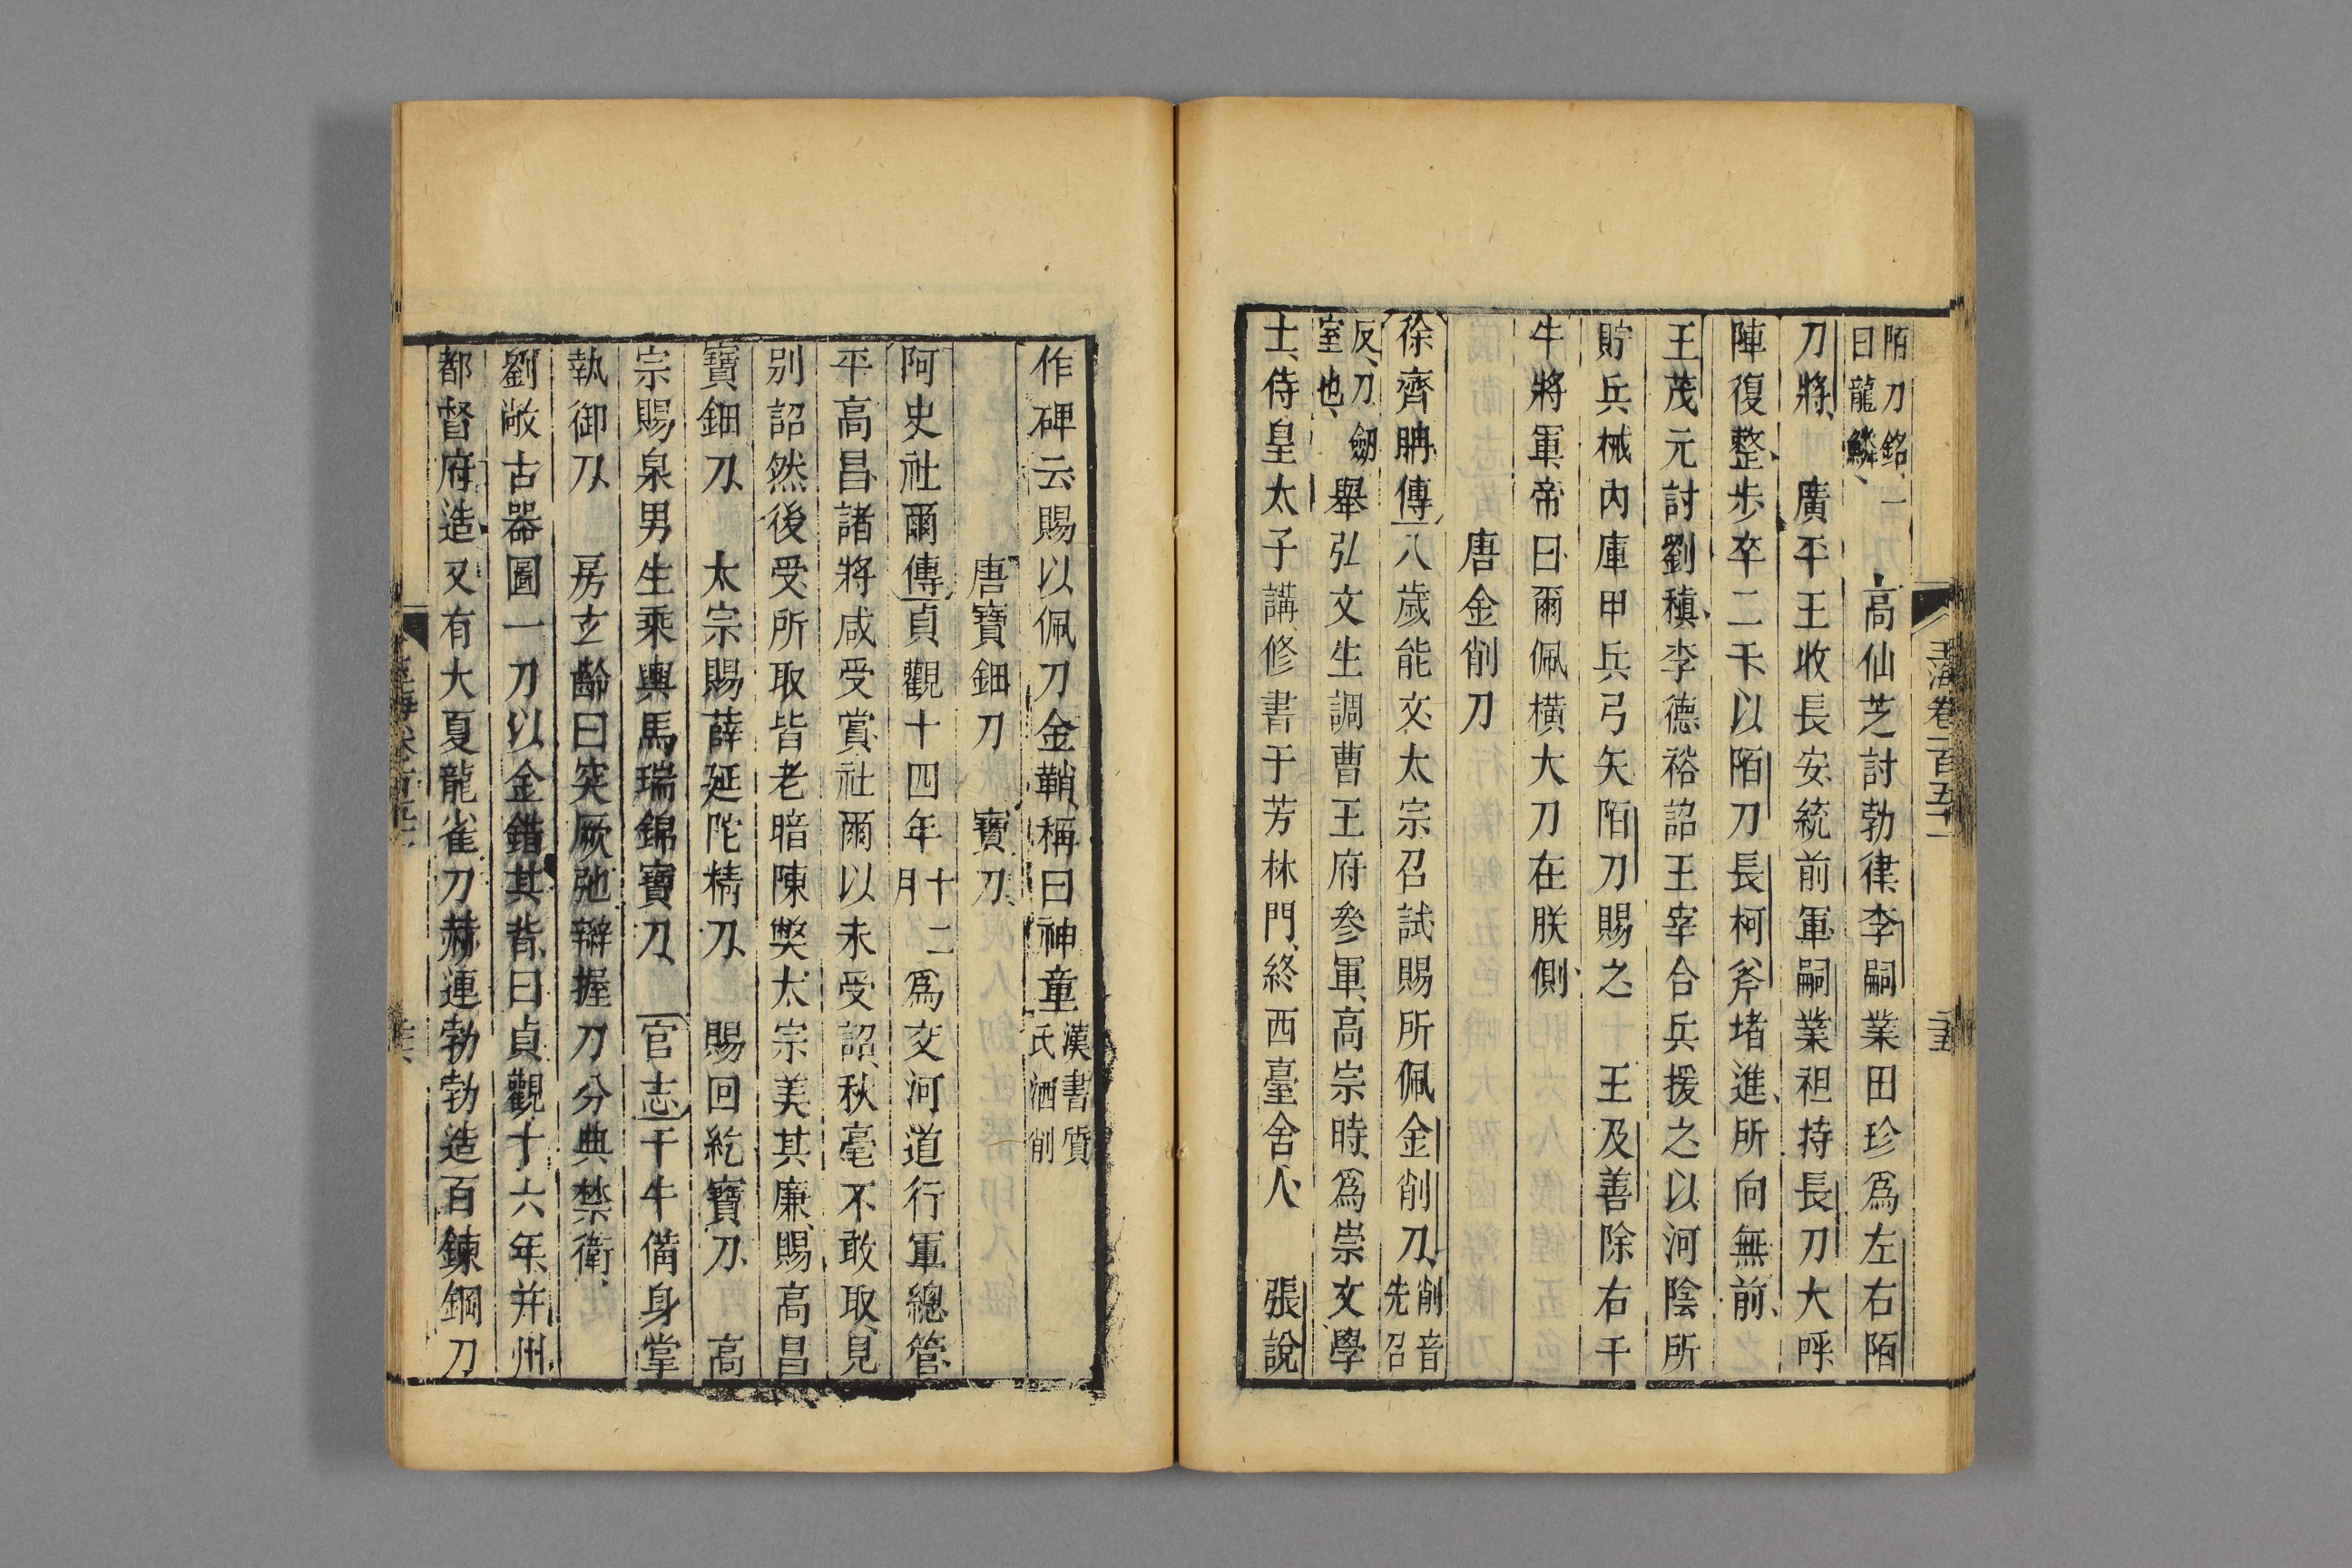 玉海卷一百五十一
陌刀銘一曰龍鱗 高仙芝討勃律李嗣業田珍爲左右陌
刀將 廣平王收長安統前軍嗣業袒持長刀大呼
陣復整步卒二千以陌刀長柯斧堵進所向無前
王茂元討劉稹李德裕詔王宰合兵援之以河陰所
貯兵械內庫甲兵弓矢陌刀賜之 王及善除右千
牛將軍帝曰爾佩橫大刀在朕側
唐金削刀
徐齊聃傳八歲能文太宗召試賜所佩金削刀削音先召
反刀劒室也 舉弘文生調曹王府參軍高宗時爲崇文學
士侍皇太子講修書于芳林門終西臺舍人 張說
作碑云賜以佩刀金鞘稱曰神童漢書質氏洒削
唐寶鈿刀 寶刀
阿史社爾傳貞觀十四年十二月爲交河道行軍總管
平高昌諸將咸受賞社爾以未受詔秋毫不敢取見
别詔然後受所取皆老暗陳獘太宗美其廉賜高昌
寶鈿刀 太宗賜薛延陀精刀 賜回紇寶刀 高
宗賜泉男生乘輿馬瑞錦寶刀 官志千牛備身掌
執御刀 房玄齡曰突厥弛辮握刀分典禁衛
劉敞古器圖一刀以金錯其背曰貞觀十六年并州
都督府造又有大夏龍雀刀赫連勃勃造百鍊鋼刀